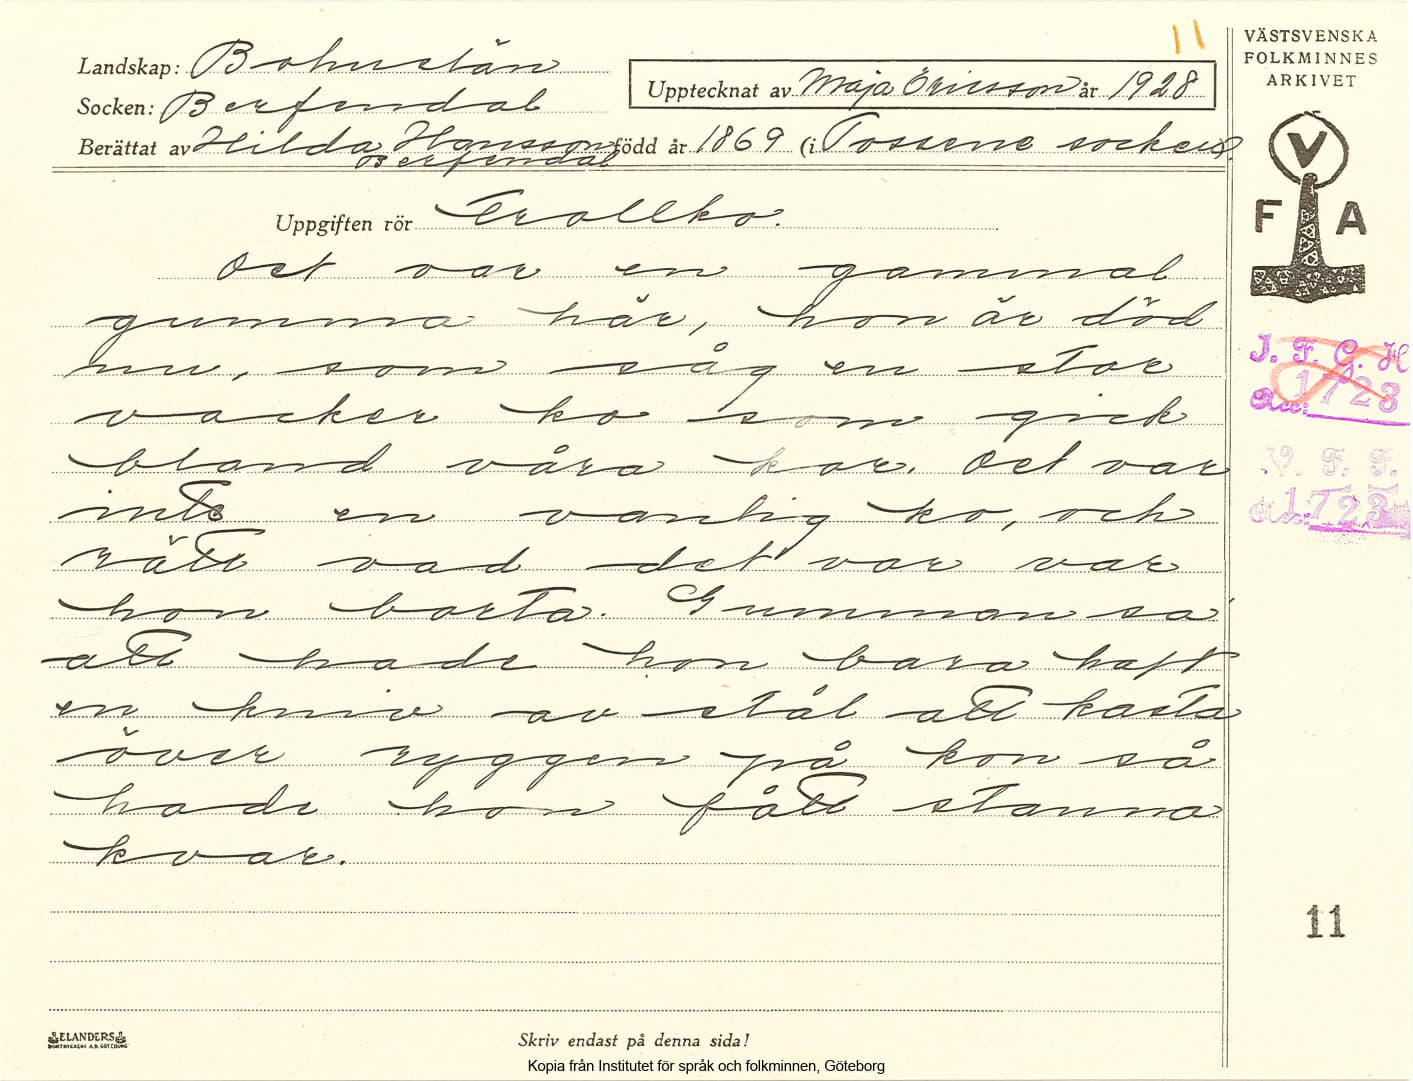 11
Landskap: Bohuslän
Socken: Berfendal
Upptecknat av Maja Ericsson år 1928
Berättat av Hilda Hansson född år 1869 (i Tossene socken).
Berfendal
Uppgiften rör Trollko.
Det var en gammal
gumma här, hon är död
nu, som såg en stor
vacker ko som gick
bland våra kor. Det var
inte en vanlig ko, och
rätt vad det var var
hon borta. Gumman sa'
att hade hon bara haft
en kniv av stål att kasta
över ryggen på kon så
hade hon fått stanna
kvar.
VÄSTSVENSKA
FOLKMINNES
ARKIVET
V
F A
I. F. G. H
1723
V. F. F.
1723
11
ELANDERS
BOKTRYCKERI A.B. GÖTEBORG
Skriv endast på denna sida!
Kopia från Institutet för språk och folkminnen, Göteborg